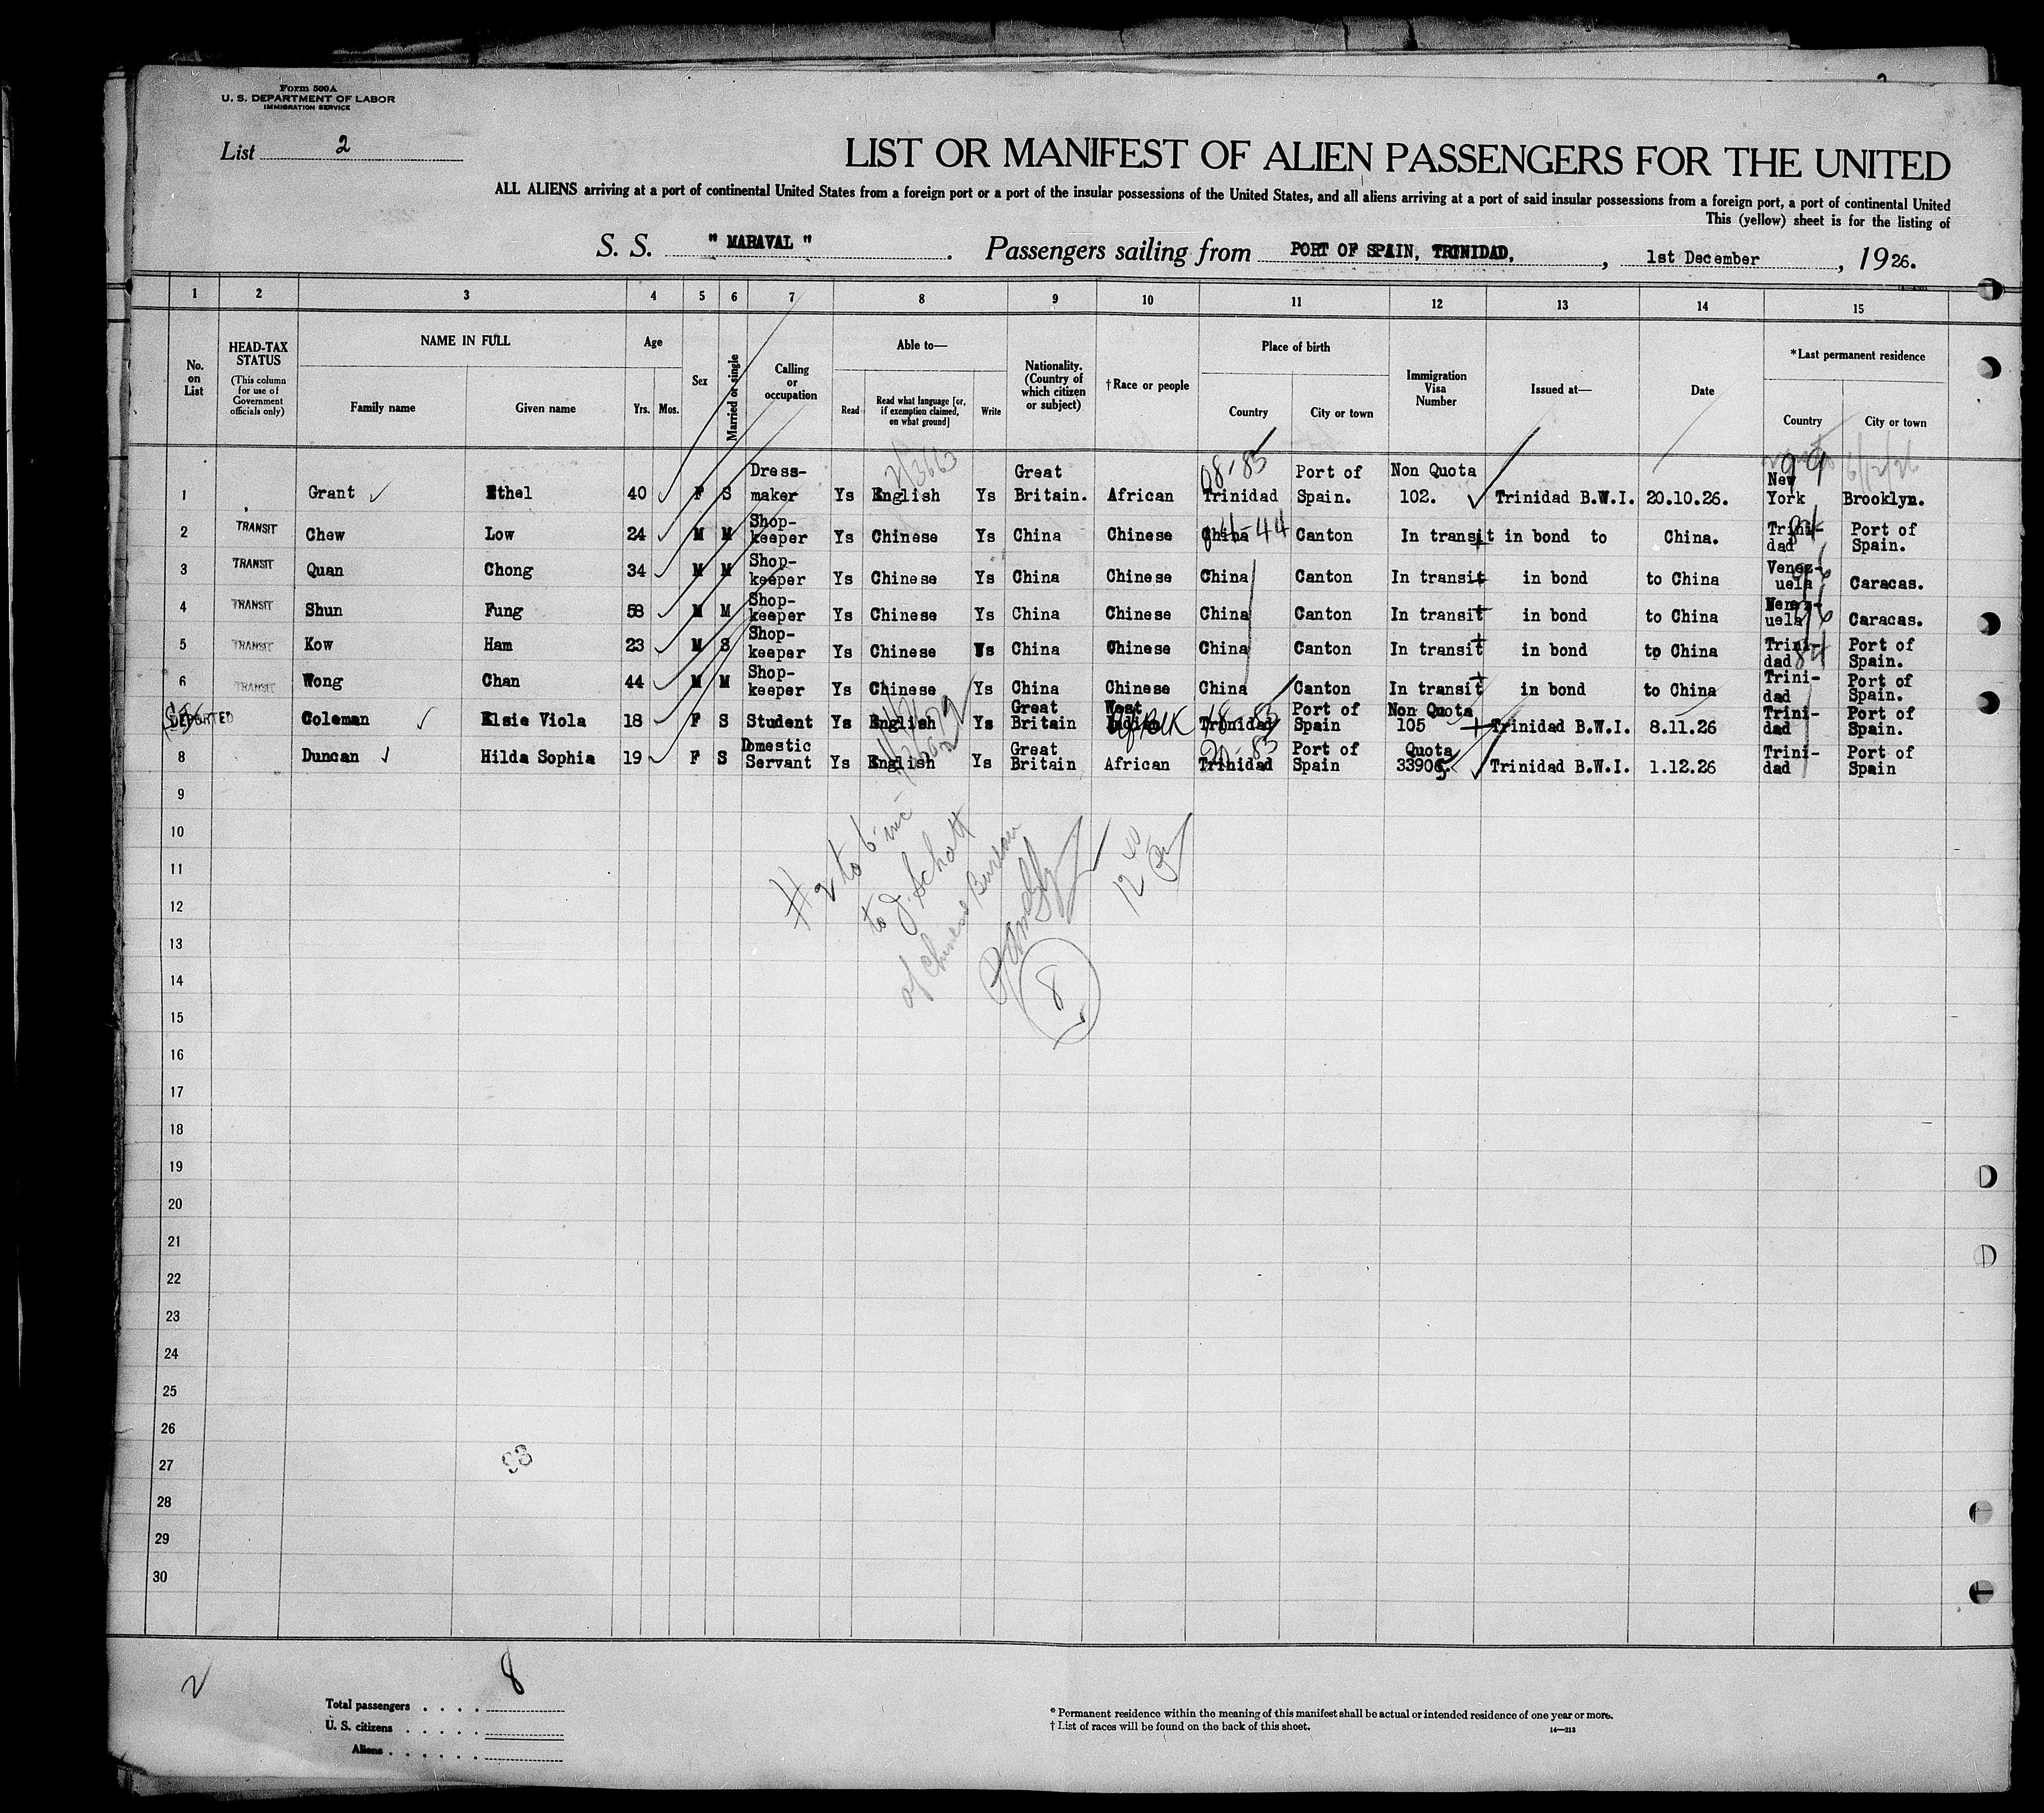 Form 500A
U. S. DEPARTMENT OF LABOR
IMMIGRATION SERVICE
List 2
LIST OR MANIFEST OF ALIEN PASSENGERS FOR THE UNITED
ALL ALIENS arriving at a port of continental United States from a foreign port or a port of the insular possessions of the United States, and all aliens arriving at a port of said insular possessions from a foreign port, a port of continental United
This (yellow) sheet is for the listing of
S. S. " MARAVAL ". Passengers sailing from PORT OF SPAIN, TRINIDAD, , 1st December , 1926.
1 2 3 4 5 6 7 8 9 10 11 12 13 14 15
No. on List
HEAD-TAX STATUS
(This column for use of Government officials only)
NAME IN FULL
Family name Given name
Age
Yrs. Mos.
Sex
Married or single
Calling or occupation
Able to—
Read Read what language [or, if exemption claimed, on what ground] Write
Nationality. (Country of which citizen or subject)
† Race or people
Place of birth
Country City or town
Immigration Visa Number
Issued at—
Date
*Last permanent residence
Country City or town
1 Grant Ethel 40 F S Dress-maker Ys English Ys Great Britain. African Trinidad Port of Spain. Non Quota 102. Trinidad B.W.I. 20.10.26. New York Brooklyn.
2 TRANSIT Chew Low 24 M M Shop-keeper Ys Chinese Ys China Chinese China Canton In transit in bond to China. Trini-dad Port of Spain.
3 TRANSIT Quan Chong 34 M M Shop-keeper Ys Chinese Ys China Chinese China Canton In transit in bond to China Venez-uela Caracas.
4 TRANSIT Shun Fung 58 M M Shop-keeper Ys Chinese Ys China Chinese China Canton In transit in bond to China Venez-uela Caracas.
5 TRANSIT Kow Ham 23 M S Shop-keeper Ys Chinese Ys China Chinese China Canton In transit in bond to China Trini-dad 84 Port of Spain.
6 TRANSIT Wong Chan 44 M M Shop-keeper Ys Chinese Ys China Chinese China Canton In transit in bond to China Trini-dad Port of Spain.
DEPORTED Coleman Elsie Viola 18 F S Student Ys English Ys Great Britain West Trinidad Port of Spain Non Quota 105 Trinidad B.W.I. 8.11.26 Trini-dad Port of Spain.
8 Duncan Hilda Sophia 19 F S Domestic Servant Ys English Ys Great Britain African Trinidad Port of Spain Quota 33905 Trinidad B.W.I. 1.12.26 Trini-dad Port of Spain
9
10
11
12
13
14
15
16
17
18
19
20
21
22
23
24
25
26
27
28
29
30
# 2 to 6 inc
to J. Schatt
of Chinese Bureau
8
93
2
8
Total passengers . . . .
U. S. citizens . . . . .
Aliens . . . . . .
* Permanent residence within the meaning of this manifest shall be actual or intended residence of one year or more.
† List of races will be found on the back of this sheet.
14—213